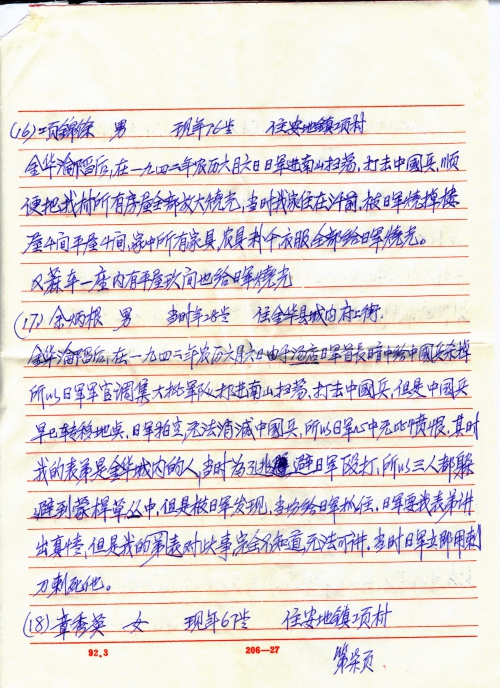 (16) 项锦徐 男 现年76岁 住安地镇项村
金华沦陷后,在一九四二年农历六月六日日军进南山扫荡,打击中國兵,顺
便把我村所有房屋全部放大燒光,当时我家住在 被日军燒掉楼
屋4间平屋4间,家中所有家具,农具 衣服全部给日军燒光。
又蔴车一座内有平屋 间也给日军燒光
(17) 余炳根 男 当时年28岁 住金华县城内府上街.
金华沦陷后,在一九四二年农历六月六日由于汤店日军首長暗中给中國兵杀掉
所以日军军官调集大批军队打进南山扫荡,打击中國兵,但是中國兵
早已转移地点,日军拍空,无法消滅中國兵,所以日军心中无比愤恨,其时
我的表弟是金华城内的人,当时为了 避日军殴打,所以三人都躲
避到 草丛中,但是被日军发现,当场给日军抓住.日军要我表弟讲
出真情,但是我的 表对此事完全不知道,无法可讲.当时日军立即用刺
刀刺死他。
(18) 章秀英 女 现年67岁 住安地镇项村
92.3 206—27
第 页